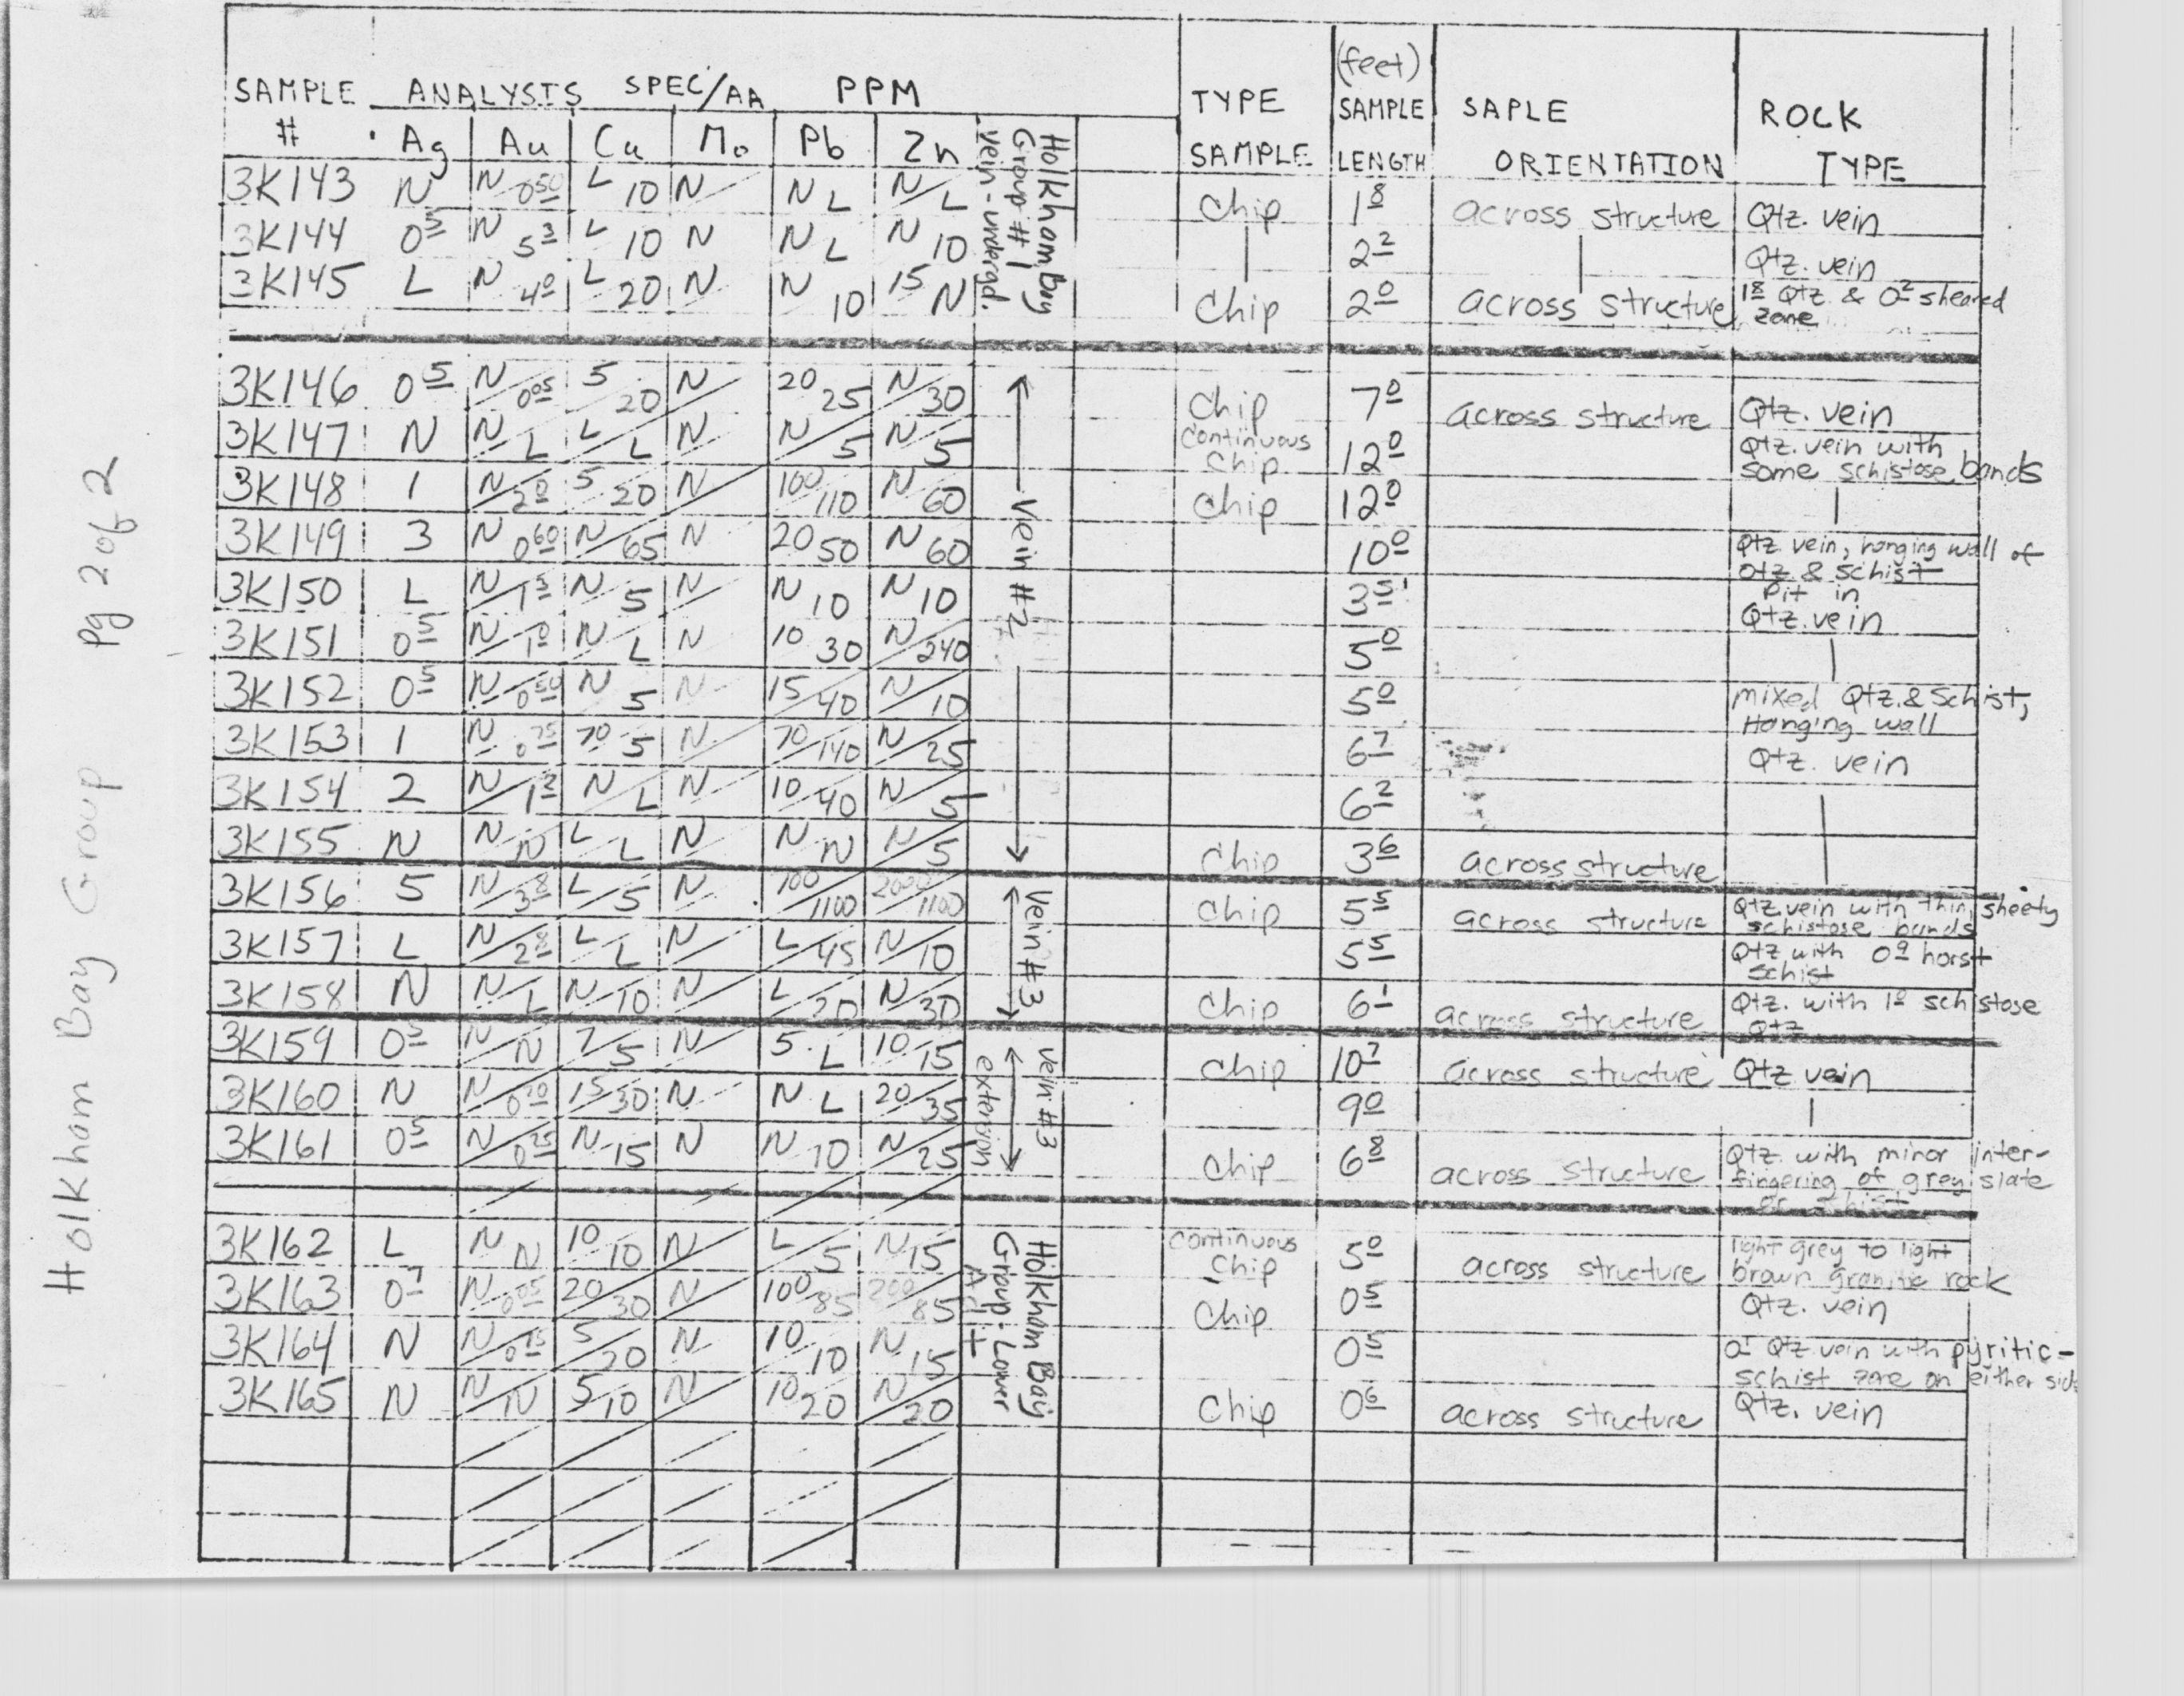 Holkham Bay Group Pg 2 of 2
SAMPLE # ANALYSIS SPEC/AA PPM TYPE SAMPLE (feet) SAMPLE LENGTH SAPLE ORIENTATION ROCK TYPE
Ag Au Cu Mo Pb Zn
Holkham Bay Group #1 vein-undergd.
3K143 N N/0.50 L/10 N N/L N/L Chip 1.8 across structure Qtz. vein
3K144 0.5 N/5.3 L/10 N N/L N/10 | 2.2 | Qtz. vein
3K145 L N/4.0 L/20 N N/10 15/N Chip 2.0 across structure 1.8 Qtz & 0.2 sheared zone
Vein #2
3K146 0.5 N/0.05 5/20 N 20/25 N/30 Chip 7.0 across structure Qtz. vein
3K147 N N/L L/L N N/5 N/5 Continuous Chip 12.0 Qtz. vein with some schistose bands
3K148 1 N/2.0 5/20 N 100/110 N/60 Chip 12.0 |
3K149 3 N/0.60 N/65 N 20/50 N/60 10.0 Qtz vein, hanging wall of Qtz & schist
3K150 L N/1.3 N/5 N N/10 N/10 3.5' Pit in Qtz. vein
3K151 0.5 N/1.0 N/L N 10/30 N/240 5.0 |
3K152 0.5 N/0.50 N/5 N 15/40 N/10 5.0 mixed Qtz. & Schist, Hanging wall
3K153 1 N/0.75 70/5 N 70/140 N/25 6.7 Qtz. vein
3K154 2 N/1.3 N/L N 10/40 N/5 6.2 |
3K155 N N/N L/L N N/N N/5 Chip 3.6 across structure
Vein #3
3K156 5 N/3.8 L/5 N 700/1100 2000/1100 Chip 5.5 across structure Qtz vein with thin, sheety schistose bands
3K157 L N/2.8 L/L N L/45 N/10 5.5 Qtz with 0.9 horst schist
3K158 N N/L N/10 N L/20 N/30 Chip 6.1 across structure Qtz. with 1.0 schistose Qtz
Vein #3 extension
3K159 0.5 N/N 7/5 N 5/L 10/15 Chip 10.7 across structure Qtz vein
3K160 N N/0.20 15/30 N N/L 20/35 9.0 |
3K161 0.5 N/0.25 N/15 N N/10 N/25 Chip 6.8 across structure Qtz. with minor inter-fingering of grey slate or schist
Holkham Bay Group: Lower Adit
3K162 L N/N 10/10 N L/5 N/15 Continuous Chip 5.0 across structure light grey to light brown granitic rock
3K163 0.7 N/0.05 20/30 N 100/85 200/85 Chip 0.5 Qtz. vein
3K164 N N/0.15 5/20 N 10/10 N/15 0.5 0.1 Qtz vein with pyritic-schist zone on either side
3K165 N N/N 5/10 N 10/20 N/20 Chip 0.6 across structure Qtz. vein